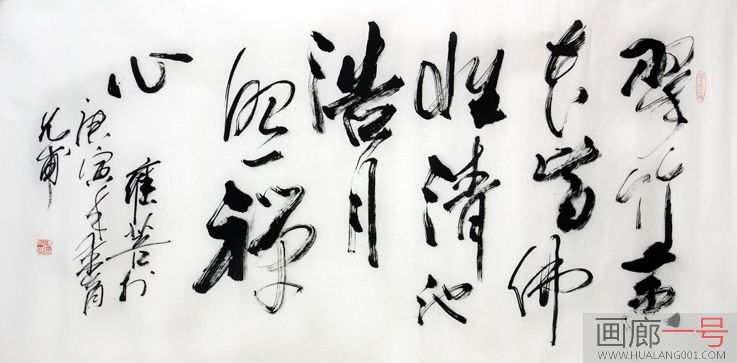 翠竹黄
花皆佛
性清池
浩月
照禅
心
庚寅年
画廊一号
WWW.HUALANG001.COM